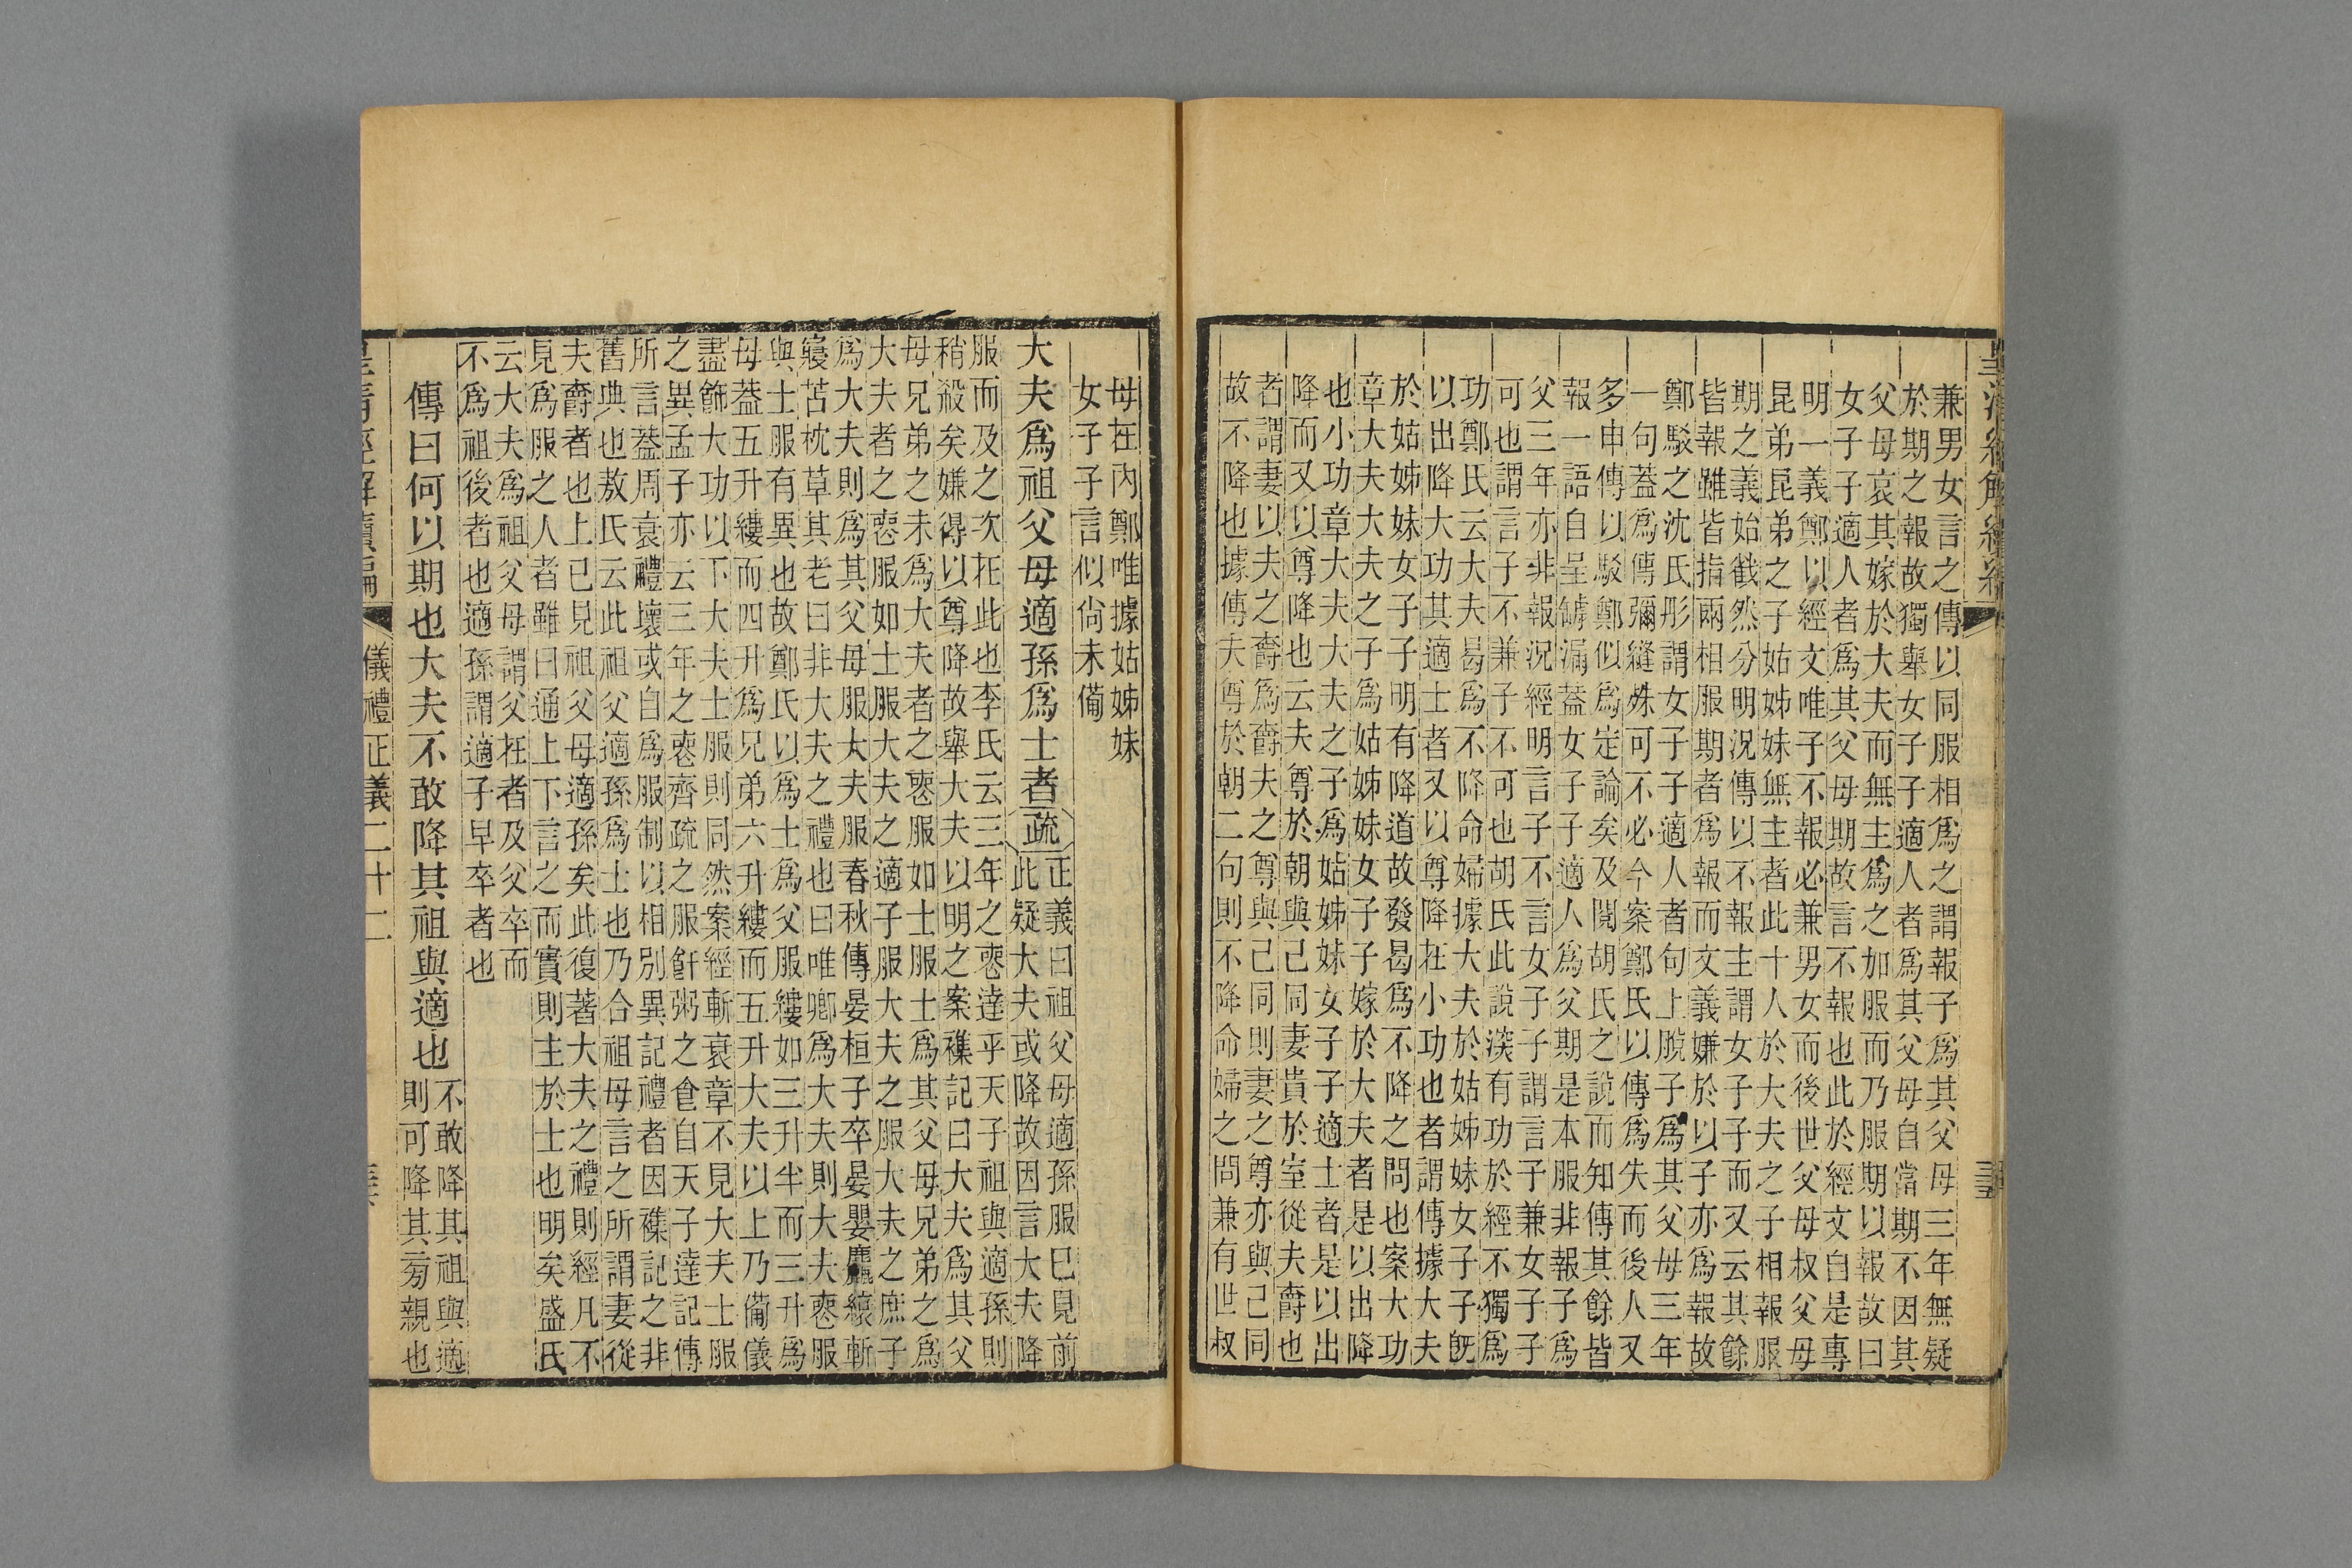 兼男女言之傳以同服相爲之謂報子爲其父母三年無疑
於期之報故獨舉女子子適人者爲其父母自當期不因其
父母哀其嫁於大夫而無主爲之加服而乃服期以報故曰
女子子適人者爲其父母期故言不報也此於經文自是專
明一義鄭以經文唯子不報必兼男女而後世父母叔父母
昆弟昆弟之子姑姊妹無主者此十人於大夫之子相報服
期之義始截然分明況傳以不報主謂女子子而又云其餘
皆報雖皆指兩相服期者爲報而文義嫌於以子亦爲報故
鄭駁之沈氏彤謂女子子適人者句上脫子爲其父母三年
一句蓋爲傳彌縫殊可不必今案鄭氏以傳爲失而後人又
多申傳以駁鄭似爲定論矣及閱胡氏之說而知傳其餘皆
報一語自呈罅漏蓋女子子適人爲父期是本服非報子爲
父三年亦非報況經明言子不言女子子謂言子兼女子子
可也謂言子不兼子不可也胡氏此說深有功於經不獨爲
功鄭氏云大夫曷爲不降命婦據大夫於姑姊妹女子子旣
以出降大功其適士者又以尊降在小功也者謂傳據大夫
於姑姊妹女子子明有降道故發曷爲不降之問也案大功
章大夫大夫之子爲姑姊妹女子子嫁於大夫者是以出降
也小功章大夫大夫之子爲姑姊妹女子子適士者是以出
降而又以尊降也云夫尊於朝與己同妻貴於室從夫爵也
者謂妻以夫之爵爲爵夫之尊與己同則妻之尊亦與己同
故不降也據傳夫尊於朝二句則不降命婦之問兼有世叔
母在內鄭唯據姑姊妹
女子子言似尙未備
大夫爲祖父母適孫爲士者疏正義曰祖父母適孫服已見前
此疑大夫或降故因言大夫降
服而及之次在此也李氏云三年之喪達乎天子祖與適孫則
稍殺矣嫌得以尊降故舉大夫以明之案襍記曰大夫爲其父
母兄弟之未爲大夫者之喪服如士服士爲其父母兄弟之爲
大夫者之喪服如士服大夫之適子服大夫之服大夫之庶子
爲大夫則爲其父母服大夫服春秋傳晏桓子卒晏嬰麤縗斬
寢苫枕草其老曰非大夫之禮也曰唯卿爲大夫則大夫喪服
與士服有異也故鄭氏以爲士爲父服縷如三升半而三升爲
母蓋五升縷而四升爲兄弟六升縷而五升大夫以上乃備儀
盡飾大功以下大夫士服則同然案經斬衰章不見大夫士服
之異孟子亦云三年之喪齊疏之服飦粥之食自天子達記傳
所言蓋周衰禮壞或自爲服制以相別異記禮者因襍記之非
舊典也敖氏云此祖父適孫爲士也乃合祖母言之所謂妻從
夫爵者也上已見祖父母適孫矣此復著大夫之禮則經凡不
見爲服之人者雖曰通上下言之而實則主於士也明矣盛氏
云大夫爲祖父母謂父在者及父卒而
不爲祖後者也適孫謂適子早卒者也
傳曰何以期也大夫不敢降其祖與適也不敢降其祖與適
則可降其旁親也
皇清經解續編 儀禮正義二十二